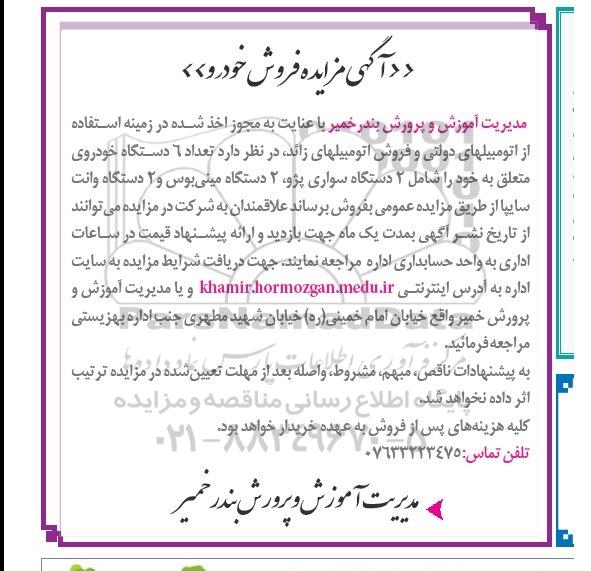 <<آگهی مزایده فروش خودرو>>
مدیریت آموزش و پرورش بندرخمیر با عنایت به مجوز اخذ شده در زمینه استفاده
از اتومبیلهای دولتی و فروش اتومبیلهای زائد، در نظر دارد تعداد ٦ دستگاه خودروی
متعلق به خود را شامل ۲ دستگاه سواری پژو، ۲ دستگاه مینی‌بوس و۲ دستگاه وانت
سایپا از طریق مزایده عمومی بفروش برساند علاقمندان به شرکت در مزایده می‌توانند
از تاریخ نشر آگهی بمدت یک ماه جهت بازدید و ارائه پیشنهاد قیمت در ساعات
اداری به واحد حسابداری اداره مراجعه نمایند. جهت دریافت شرایط مزایده به سایت
اداره به آدرس اینترنتی khamir.hormozgan.medu.ir و یا مدیریت آموزش و
پرورش خمیر واقع خیابان امام خمینی(ره) خیابان شهید مطهری جنب اداره بهزیستی
مراجعه فرمائید.
به پیشنهادات ناقص، مبهم، مشروط، واصله بعد از مهلت تعیین‌شده در مزایده ترتیب
اثر داده نخواهد شد.
پایگاه اطلاع رسانی مناقصه و مزایده
کلیه هزینه‌های پس از فروش به عهده خریدار خواهد بود.
۰۲۱-۸۸۳۴۹۶۷۰-۵
تلفن تماس:۰۷٦۳۳۲۲۳٤۷۵
مدیریت آموزش و پرورش بندر خمیر